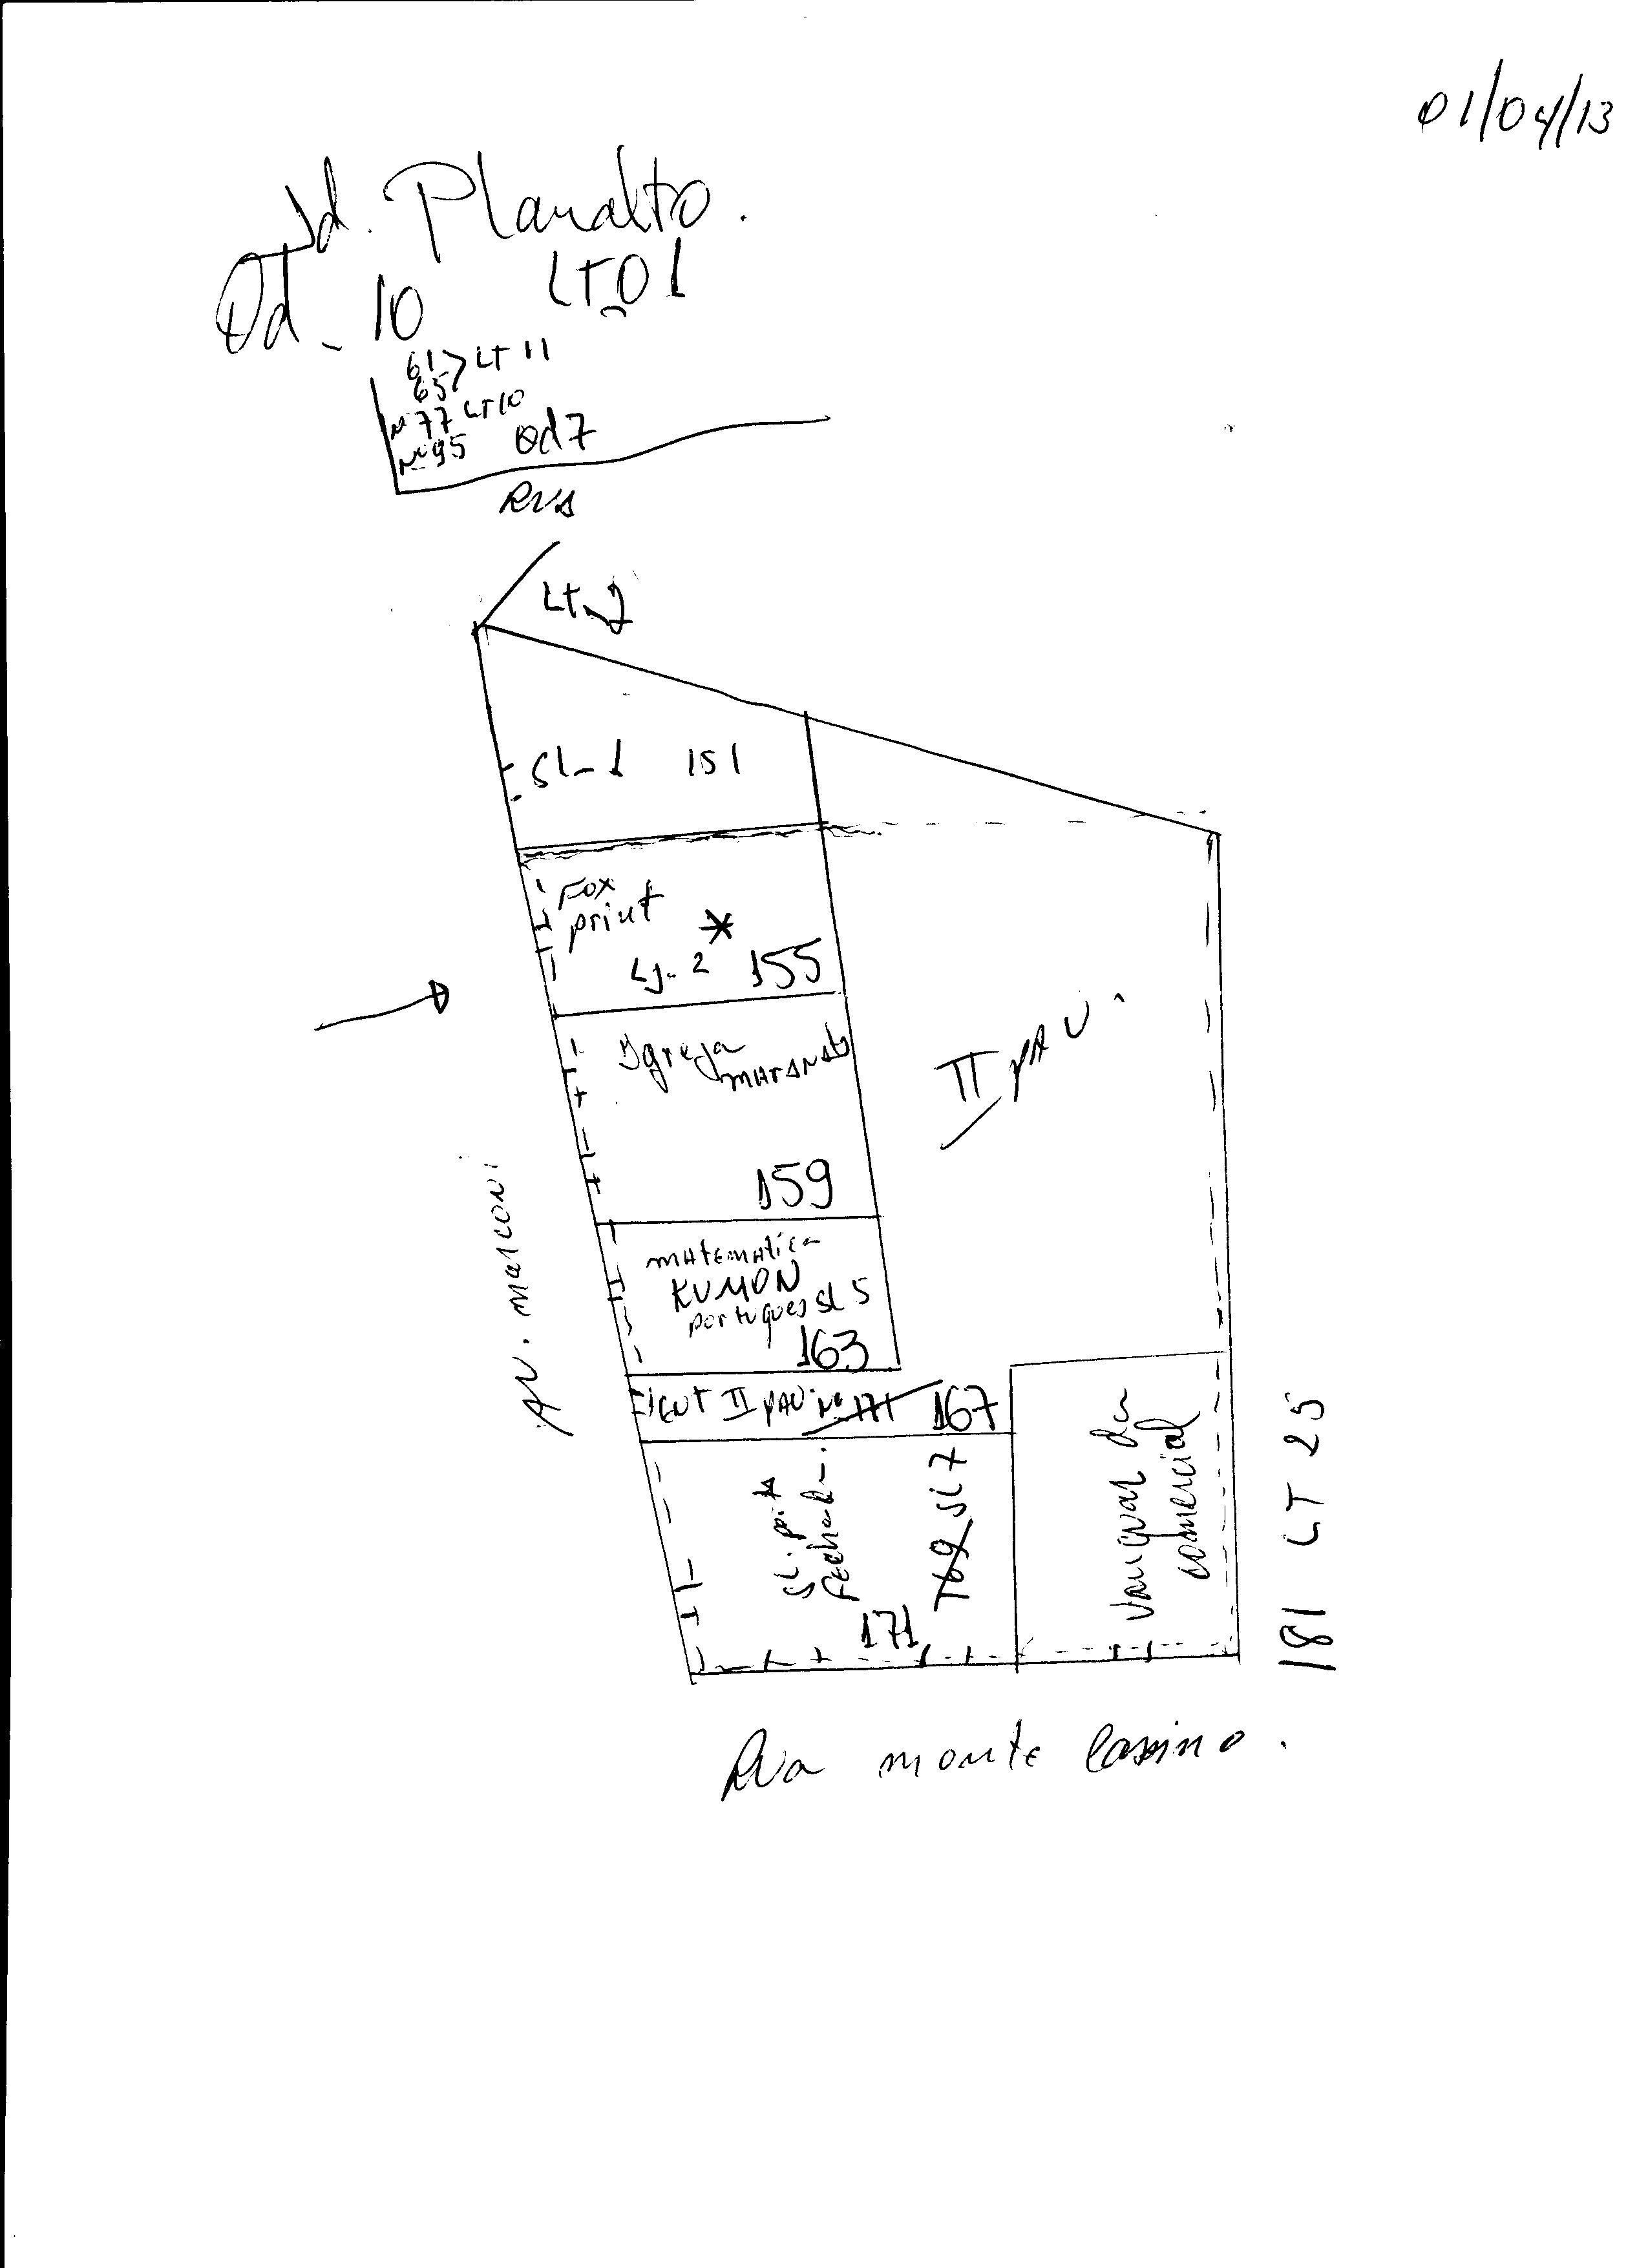 01/04/13
Jd. Planalto.
Qd_10 LT_01
61> LT 11
65
Nº 77 LT10
Nº 95 Qd7
RUA
LT_2
SL_1 151
Fox
print
Lj. 2 * 155
Igreja
MARANATA
159
MATEMATICA
KUMON
PORTUGUES SL 5
163
ENT II PAV. Nº 171 167
II PAV.
SL. porta
Fechada.
169 SL 7
171
comercial
181 LT 25
AV. MARCONI
RUA monte Cassino.